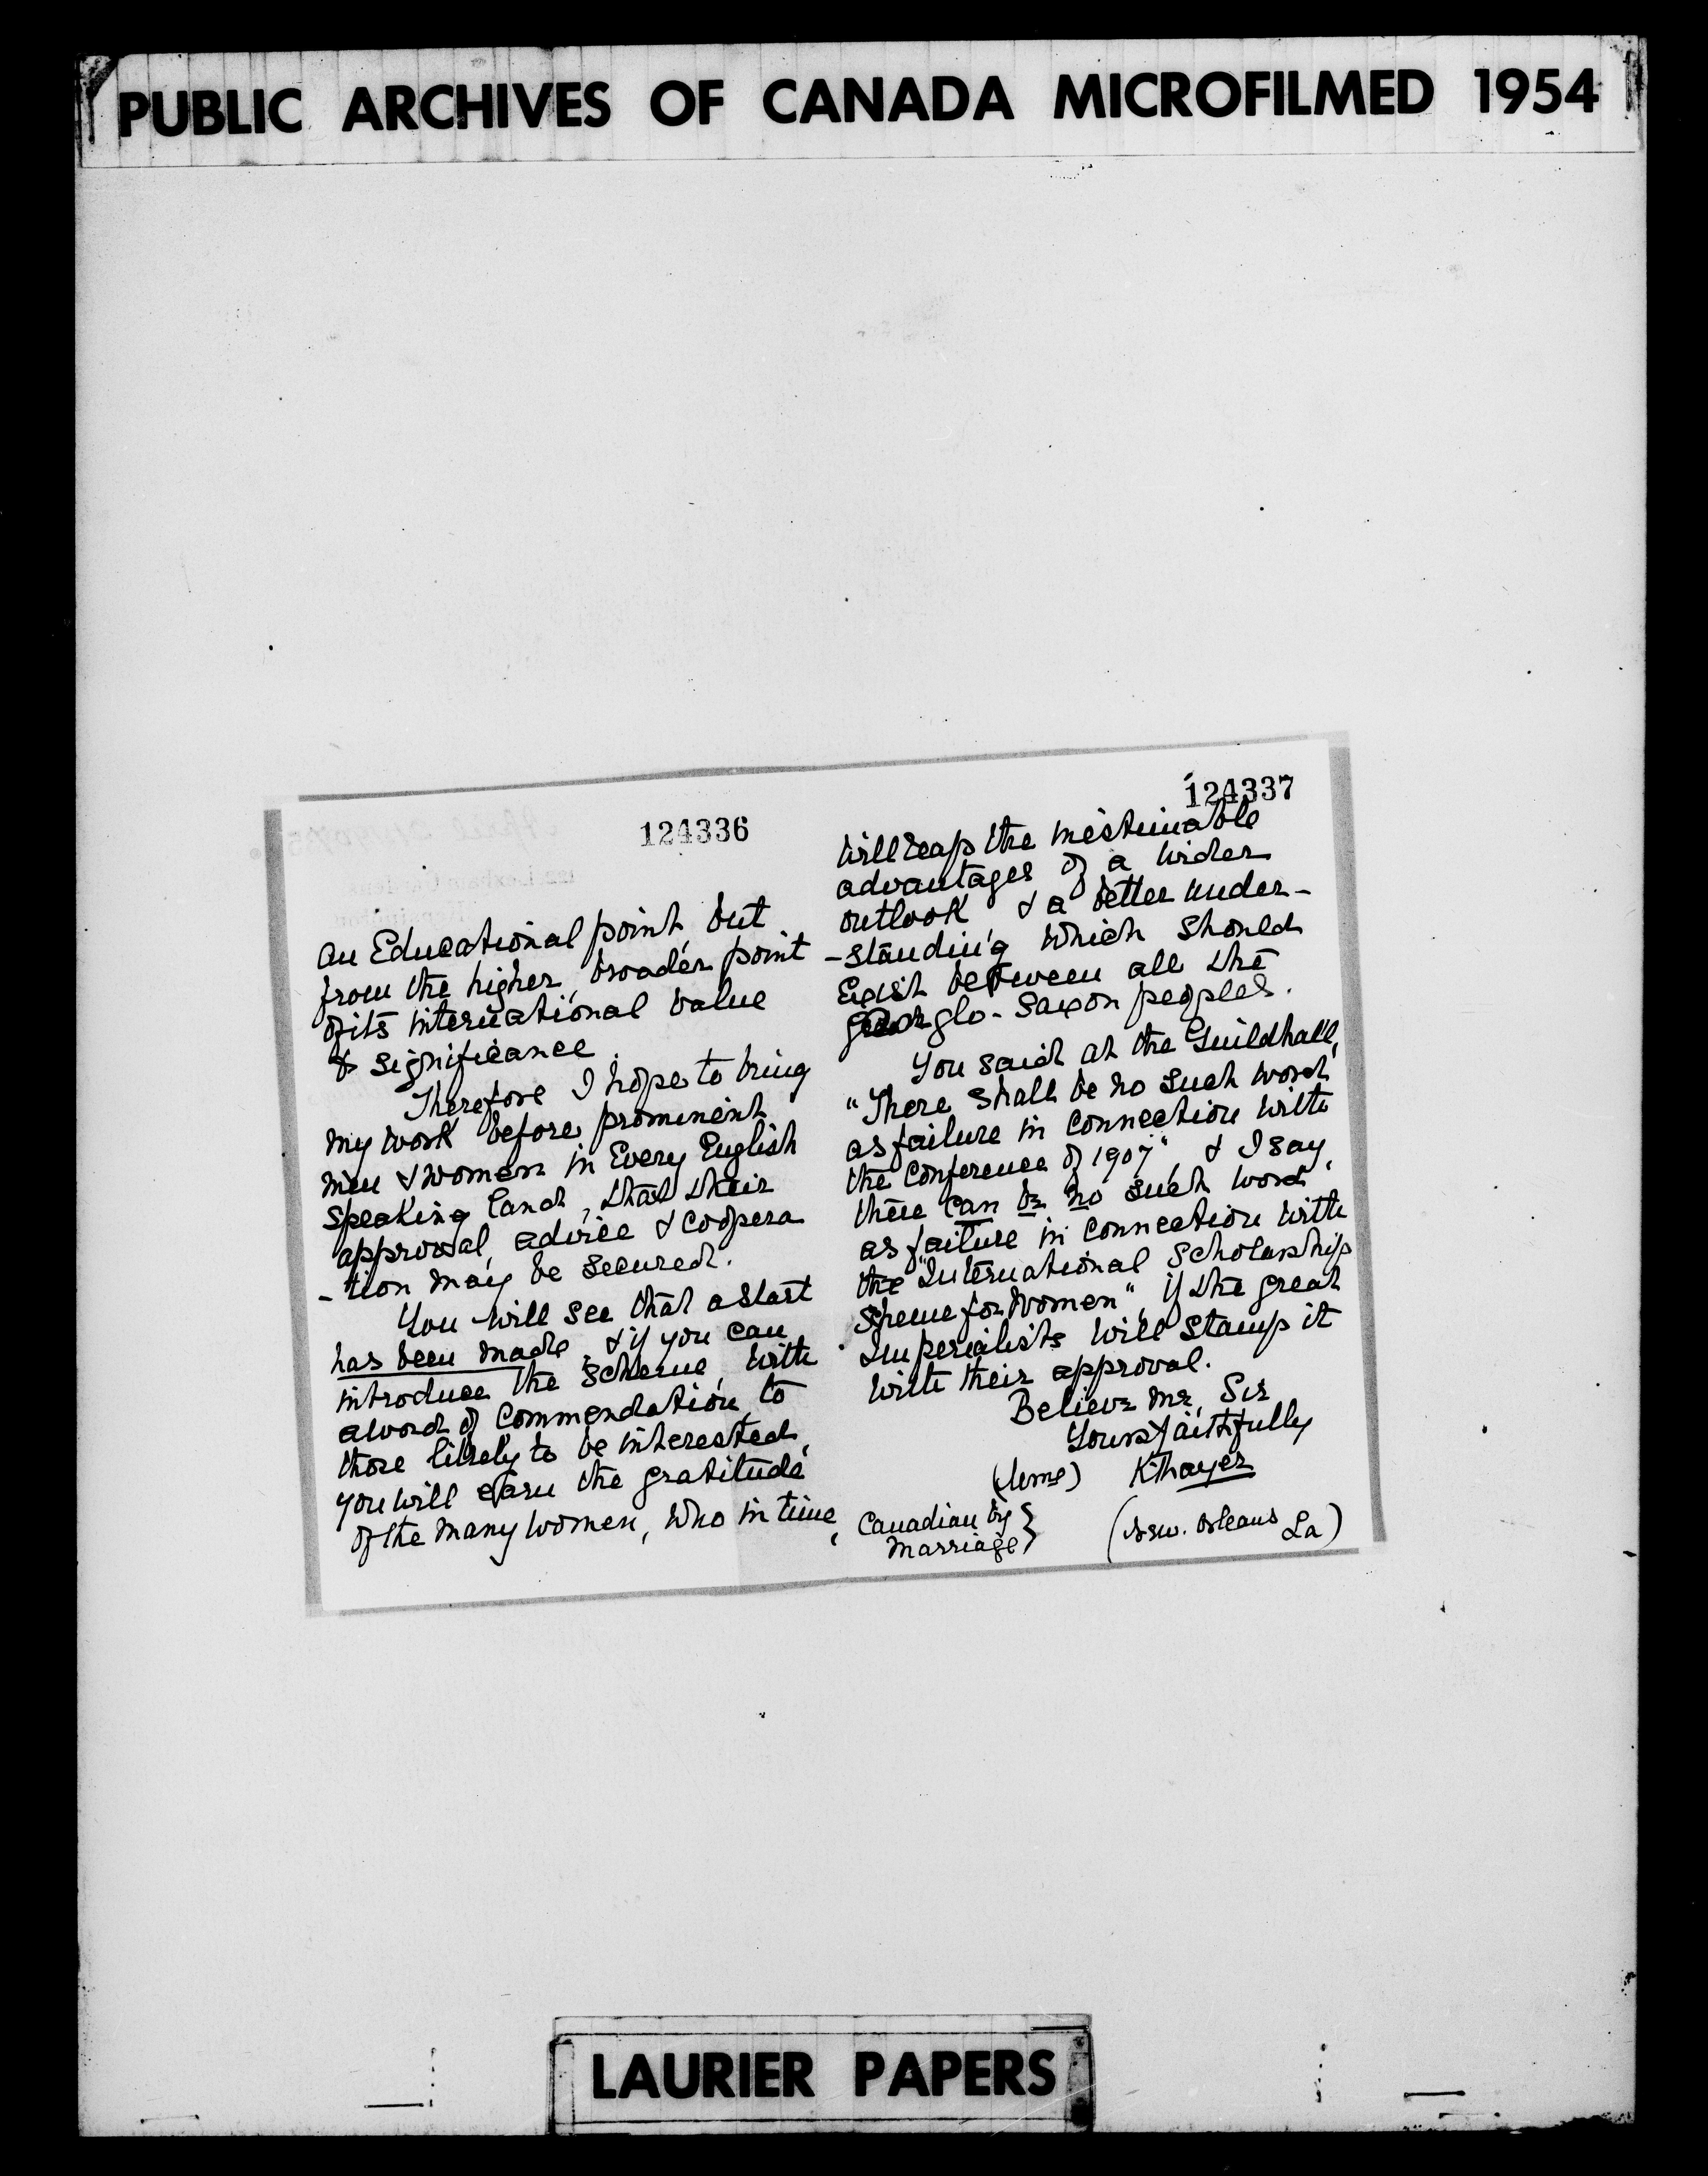 PUBLIC ARCHIVES OF CANADA MICROFILMED 1954
124336
an Educational point, but
from the higher, broader point
of its international value
& significance
Therefore I hope to bring
my work before prominent
men & women in Every English
speaking land, that their
approval, advice & coopera
-tion may be secured.
You will see that a start
has been made, & if you can
introduce the scheme, with
a word of commendation, to
those likely to be interested,
you will earn the gratitude
of the many women, who in time,
124337
will reap the inestimable
advantages of a wider
outlook & a better under-
-standing which should
Exist between all the
glo-Saxon peoples.
You said at the Guildhall,
"There shall be no such word
as failure in connection with
the Conference of 1907" & I say,
there can be no such word
as failure in connection with
the "International Scholarship
Scheme for Women", if the great
Imperialists will stamp it
with their approval.
Believe me, Sir
Yours faithfully
(Mme) K Thayer
Canadian by
marriage}
(New. Orleans La)
LAURIER PAPERS